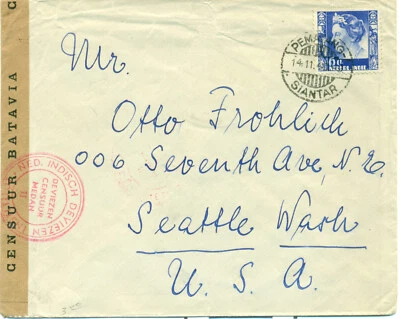 CENSUUR BATAVIA C
NED. INDISCH DEVIEZEN
DEVIEZEN
CENSUUR
MEDAN
PEMATANG
14.11.
SIANTAR
NED. INDIE
Mr.
Otto Frohlich
006 Seventh Ave, N.E.
Seattle Wash
U. S. A.